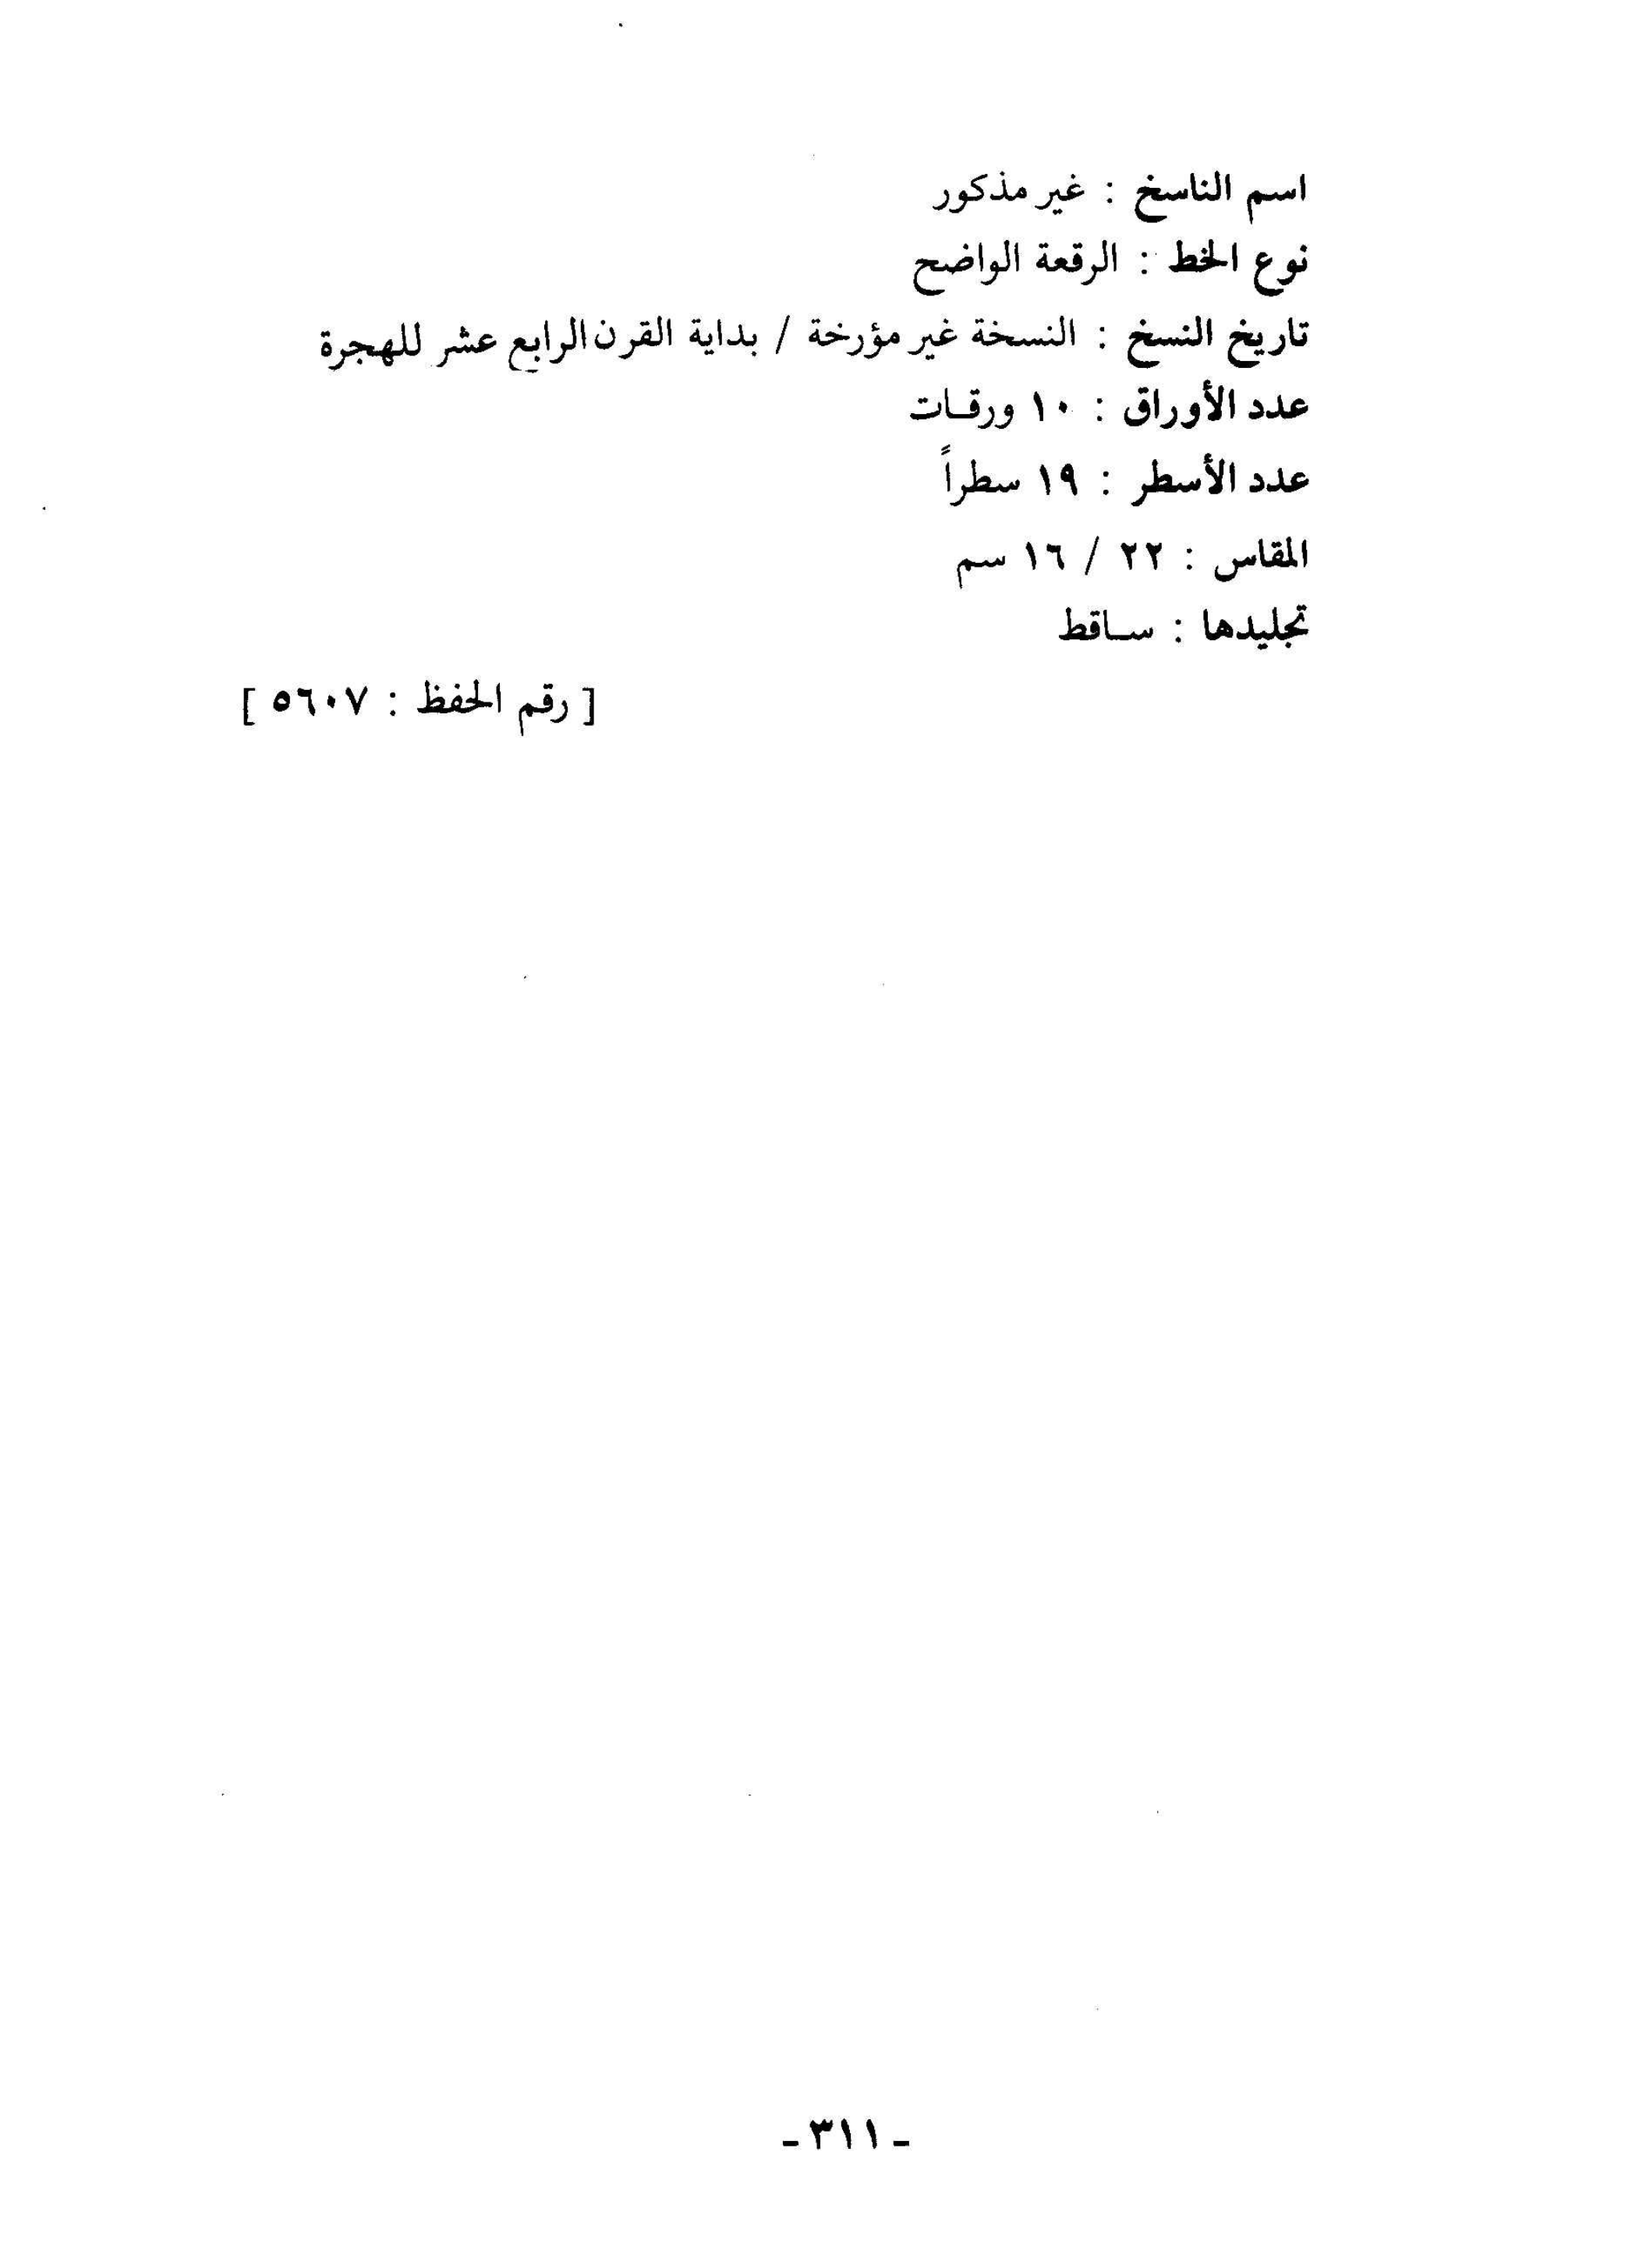 اسم الناسخ : غير مذكور
نوع الخط : الرقعة الواضح
تاريخ النسخ : النسخة غير مؤرخة / بداية القرن الرابع عشر للهجرة
عدد الأوراق : ١٠ ورقــات
عدد الأسطر : ١٩ سطراً
المقاس : ٢٢ / ١٦ سم
تجليدها : ســاقط
[ رقم الحفظ : ٥٦٠٧ ]
- ٣١١ -